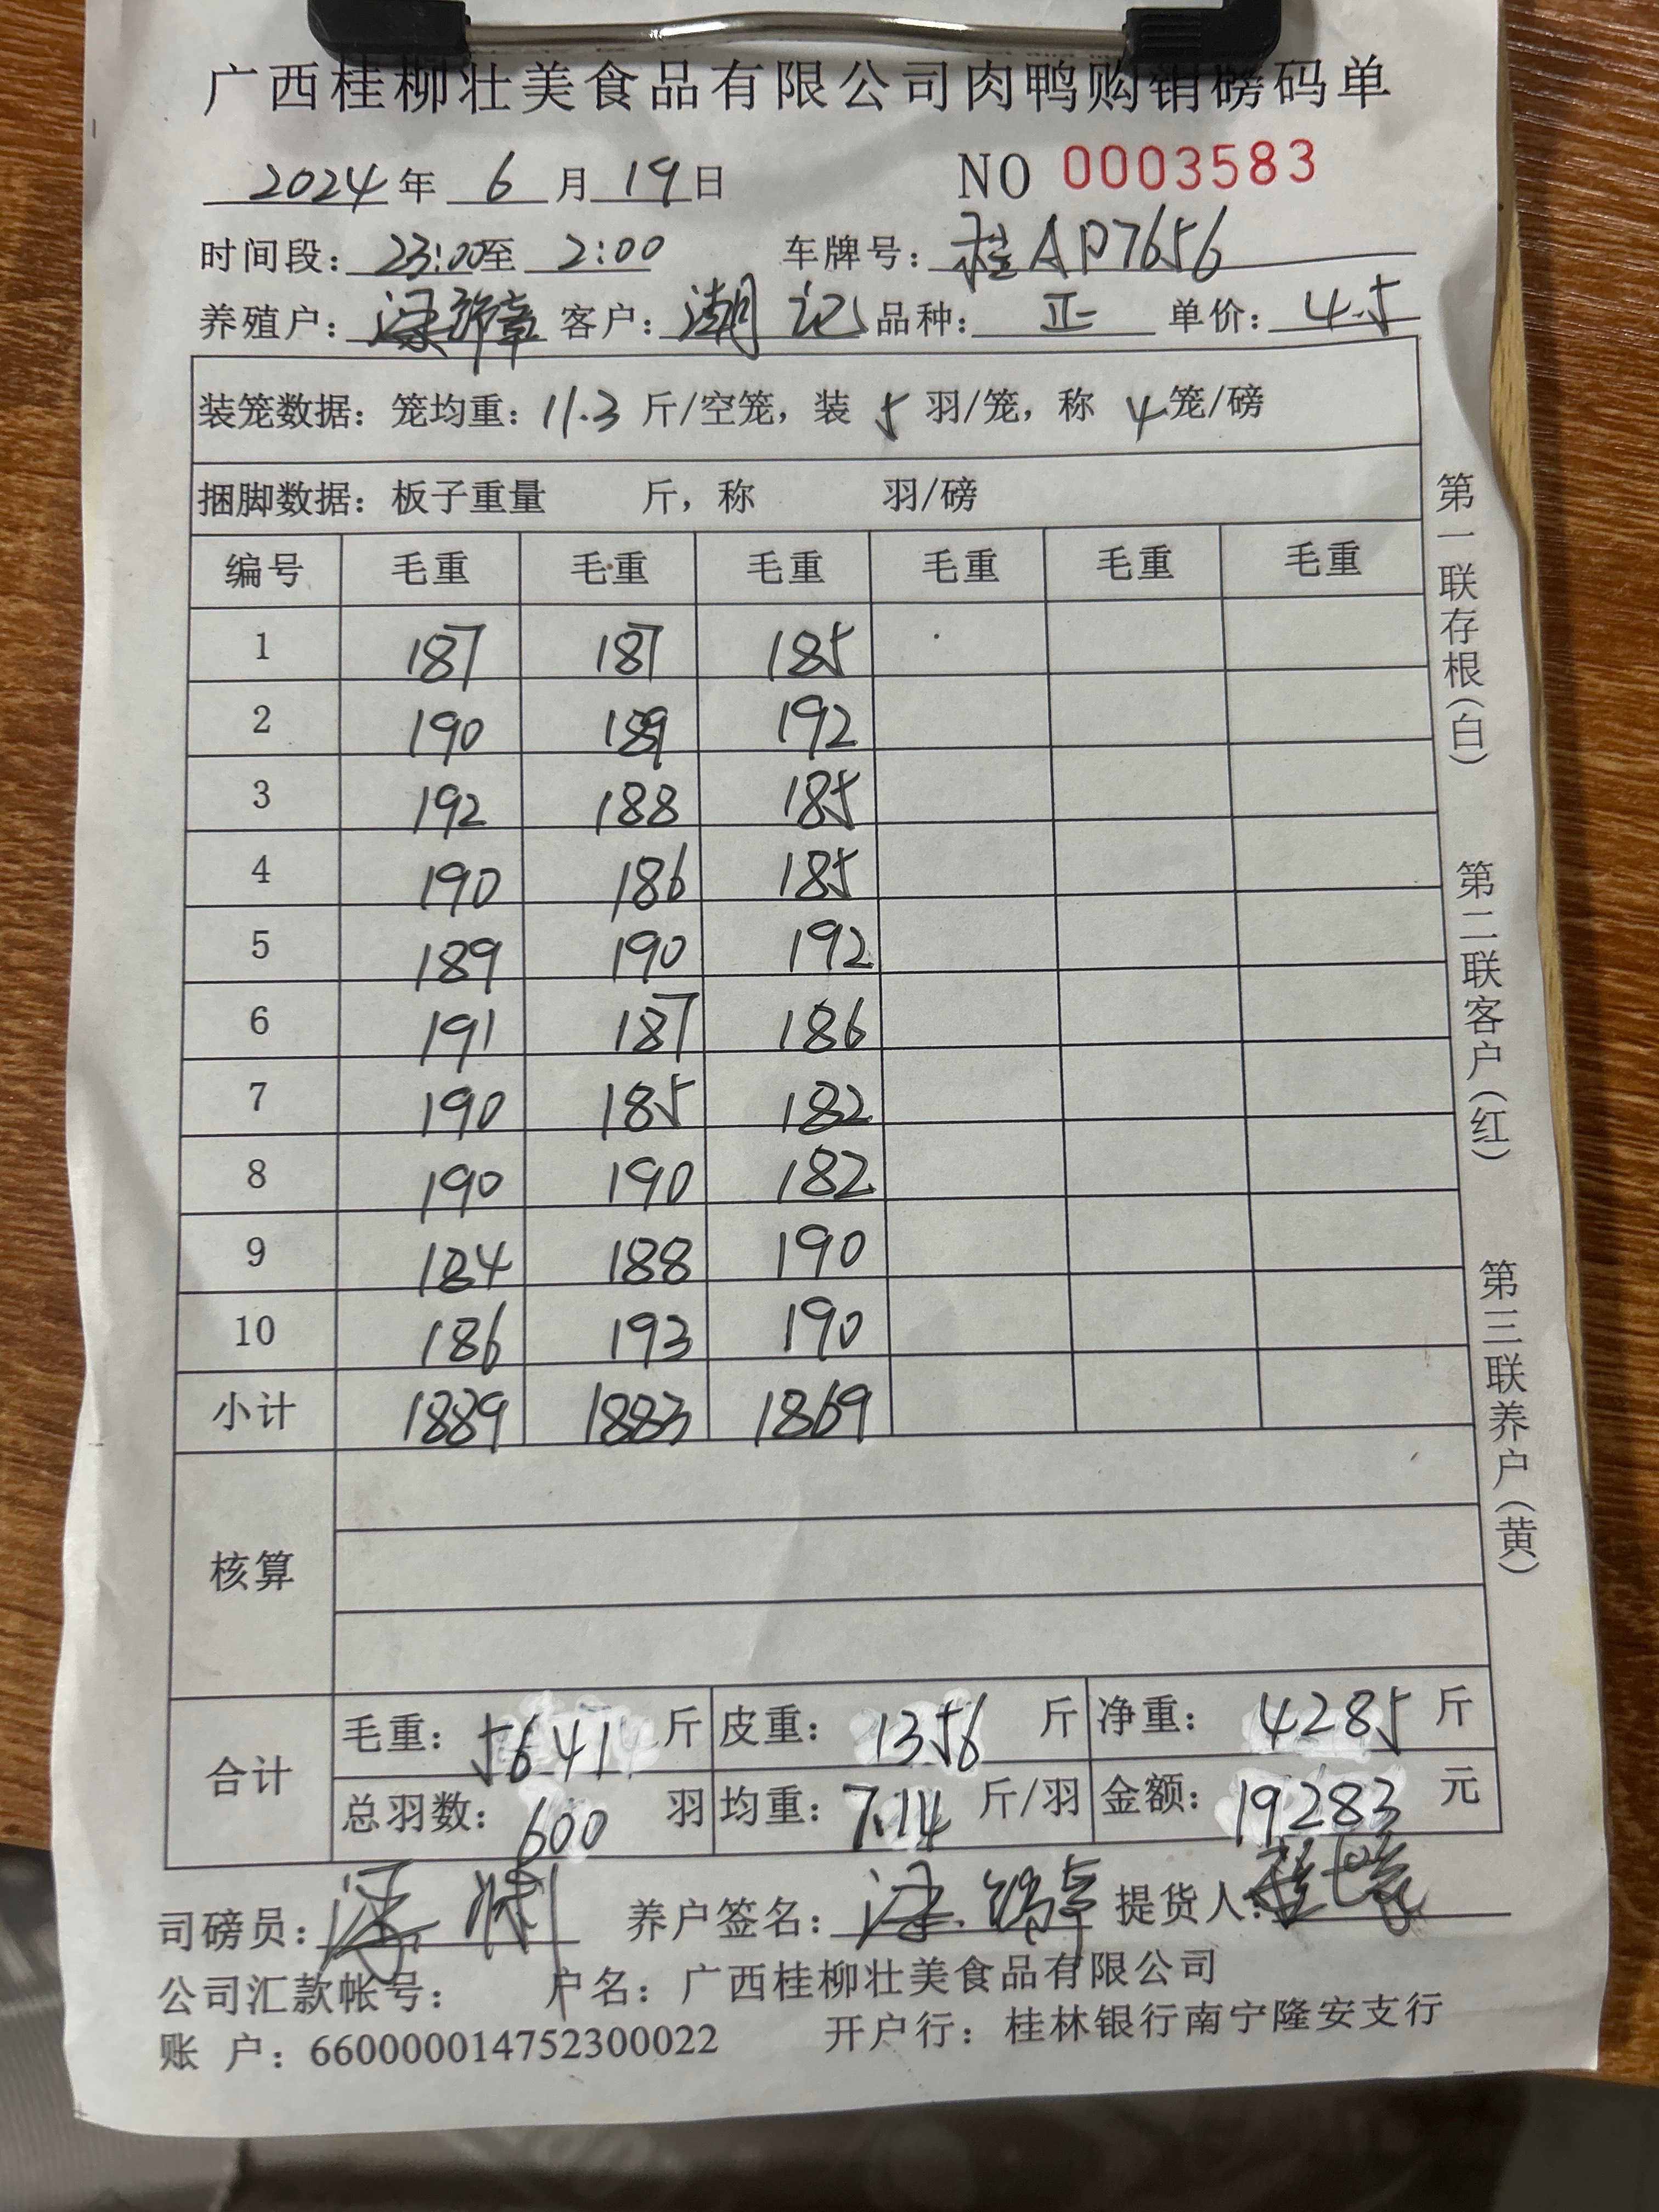 广西桂柳壮美食品有限公司肉鸭购销磅码单
2024年 6 月 19 日 NO 0003583
时间段: 23:00 至 2:00 车牌号: 桂AP7656
养殖户: 客户: 潮记 品种: 正 单价: 4.5
装笼数据: 笼均重: 11.3 斤/空笼, 装 5 羽/笼, 称 4 笼/磅
捆脚数据: 板子重量 斤, 称 羽/磅
编号 毛重 毛重 毛重 毛重 毛重 毛重
1 187 187 185
2 190 189 192
3 192 188 185
4 190 186 185
5 189 190 192
6 191 187 186
7 190 185 182
8 190 190 182
9 184 188 190
10 186 193 190
小计 1889 1883 1869
核算
合计
毛重: 5641 斤 皮重: 1356 斤 净重: 4285 斤
总羽数: 600 羽 均重: 7.14 斤/羽 金额: 19283 元
司磅员: 养户签名: 提货人:
公司汇款帐号: 户名: 广西桂柳壮美食品有限公司
账 户: 660000014752300022 开户行: 桂林银行南宁隆安支行
第一联存根(白)
第二联客户(红)
第三联养户(黄)